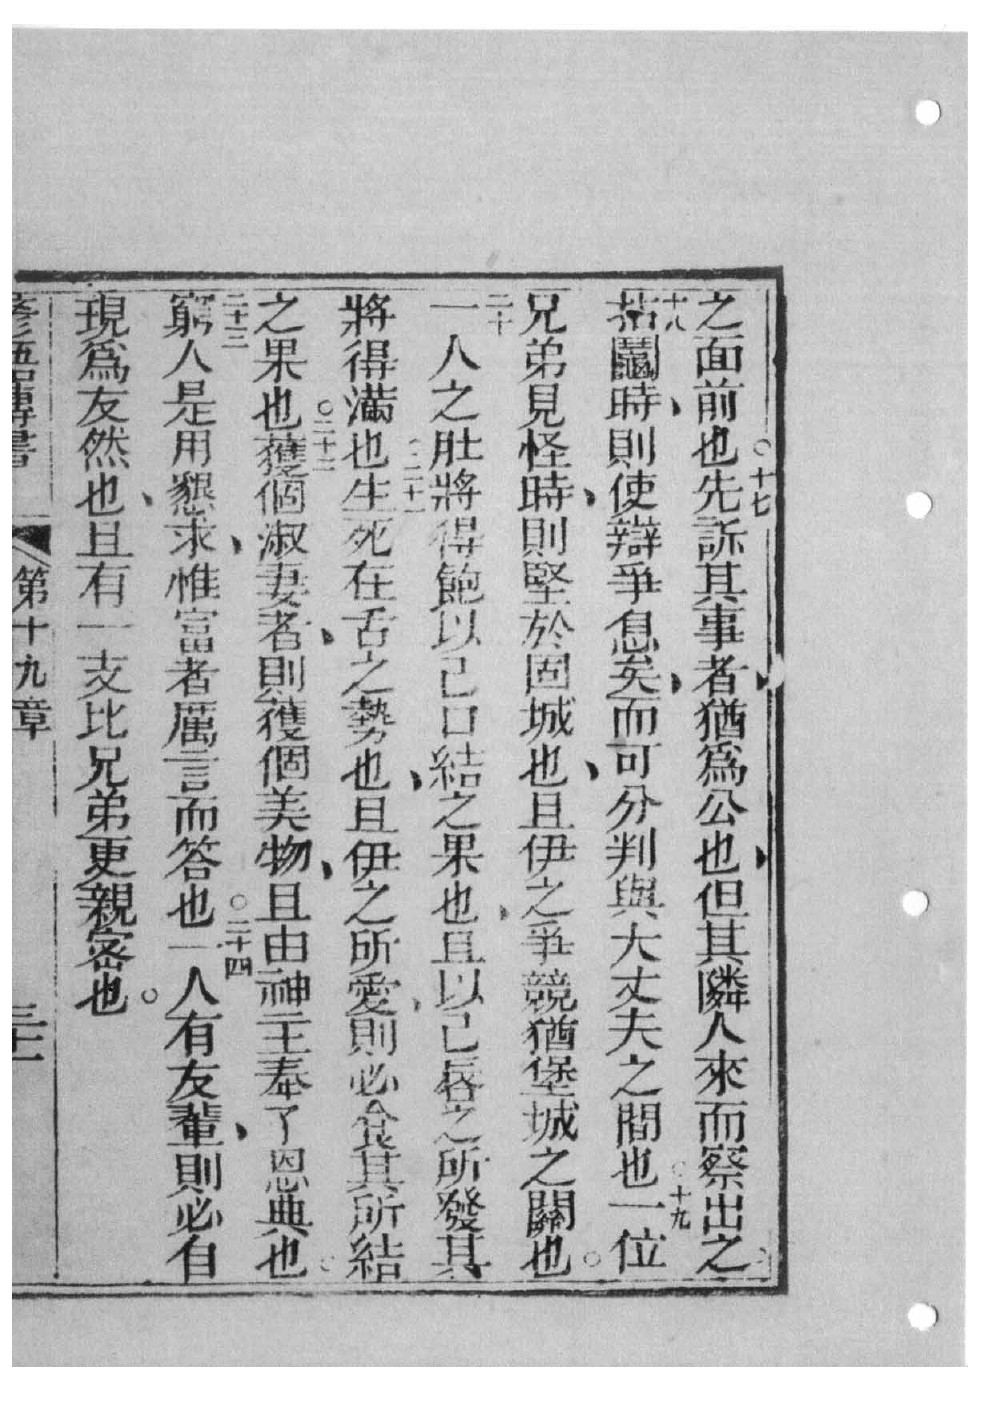 之面前也○十七先訴其事者、猶為公也、但其隣人來而察出之○
十八拈鬮時、則使辯爭息矣、而可分判與大丈夫之間也○十九一位
兄弟見怪時、則堅於固城也、且伊之爭競猶堡城之關也○
二十一人之肚將得飽以己口結之果也、且以己唇之所發其
將得滿也○二十一生死在舌之勢也、且伊之所愛、則必食其所結
之果也○二十二獲個淑妻者、則獲個美物、且由神主奉了恩典也○
二十三窮人是用懇求、惟富者厲言而答也○二十四一人有友輩、則必自
現為友然也、且有一支比兄弟更親密也○
書 第十九章 三十一